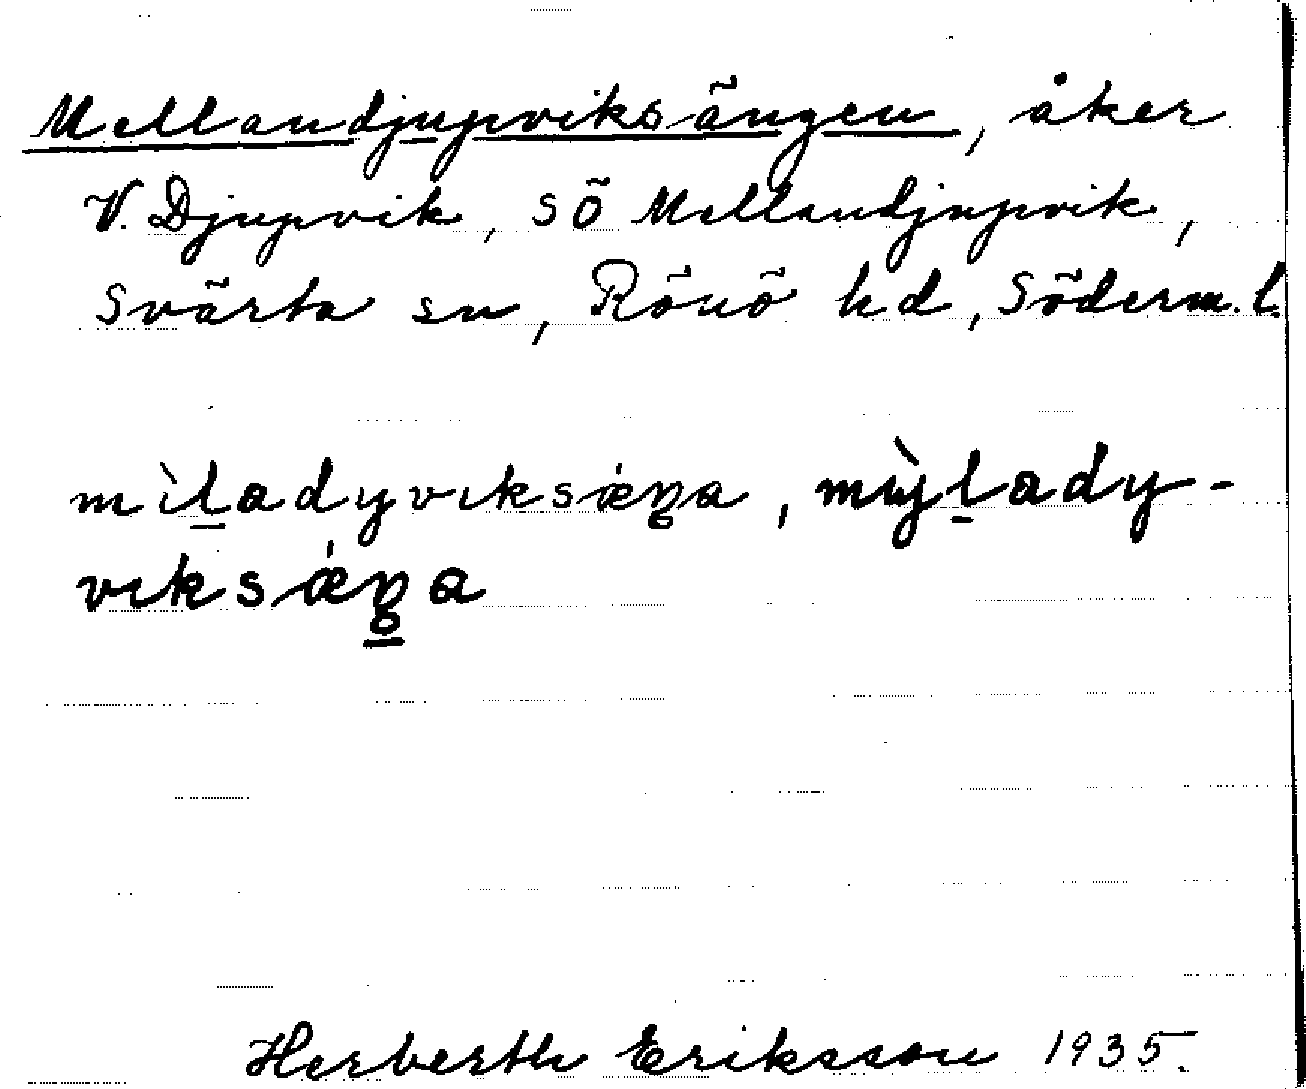 Mellandjupviksängen, åker
V. Djupvik, SÖ Mellandjupvik,
Svärta sn, Rönö hd, Söderm. l.
mìl̲adyvıksǽŋa, mỳl̲ady-
vıksǽŋ̲a
Herberth Eriksson 1935.